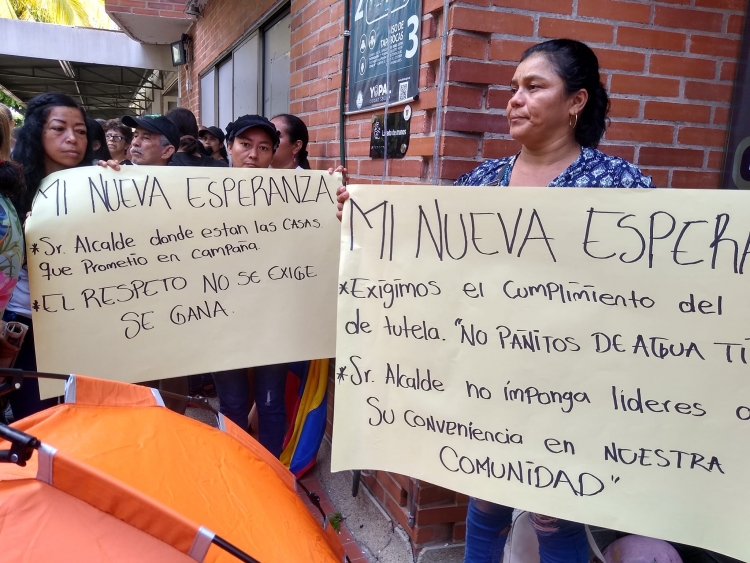 MI NUEVA ESPERANZA
* Sr. Alcalde donde estan las CASAS
que Prometio en campaña.
* EL RESPETO NO SE EXIGE
SE GANA.
MI NUEVA ESPERA
* Exigimos el cumplimiento del
de tutela. "NO PAÑITOS DE AGUA TI
* Sr. Alcalde no imponga líderes
Su conveniencia en NUESTRA
COMUNIDAD"
3
YOPAL